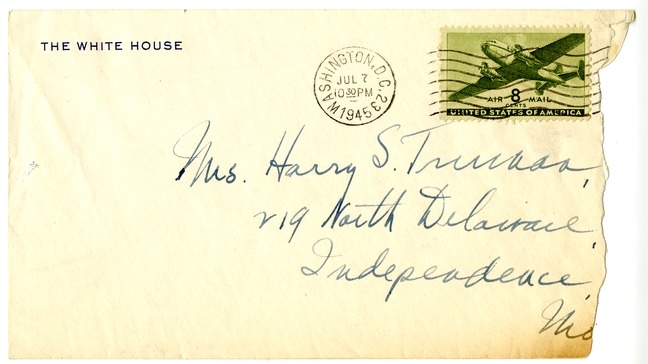 THE WHITE HOUSE
WASHINGTON, D.C. 23
JUL 7
10 30 PM
1945
AIR 8 MAIL
CENTS
UNITED STATES OF AMERICA
Mrs. Harry S. Truman,
219 North Delaware,
Independence,
Mo